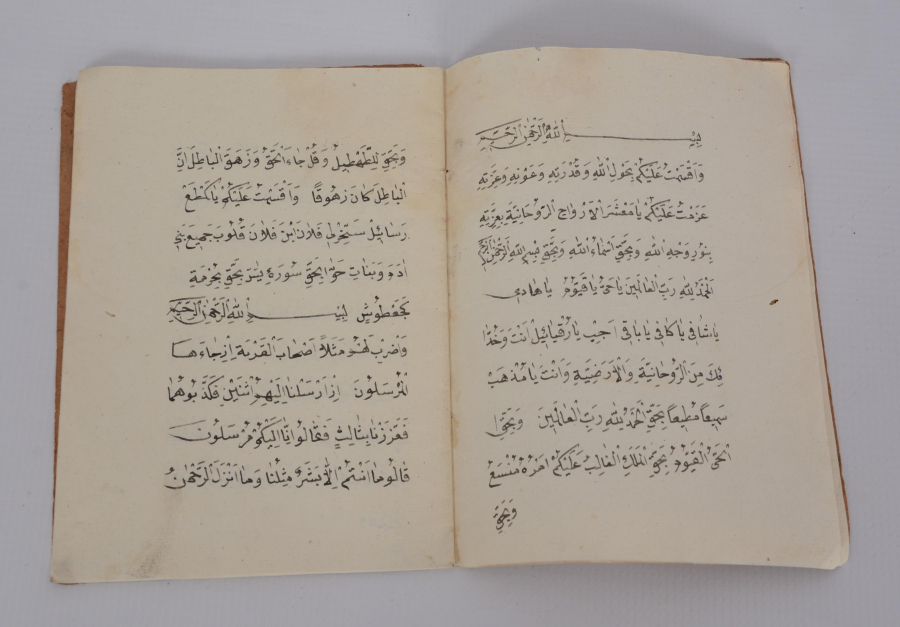 بِسْــــــمِ اللهِ الرَّحْمٰنِ الرَّحِيمِ
وَاَقْسَمْتُ عَلَيْكُمْ بِحَوْلِ اللهِ وَقُدْرَتِهِ وَعَوْنِهِ وَعِزَّتِهِ
عَزَمْتُ عَلَيْكُمْ يَا مَعْشَرَ الْاَرْوَاحِ الرَّوْحَانِيَّةِ بِعِزَّتِهِ
بِنُورِ وَجْهِ اللهِ وَبِحَقِّ اَسْمَاءِ اللهِ وَبِحَقِّ بِسْمِ اللهِ الرَّحْمٰنِ الرَّحِيمِ
اَلْحَمْدُ لِلّٰهِ رَبِّ الْعَالَمِينَ يَا حَيُّ يَا قَيُّومُ يَا هَادِي
يَا شَافِي يَا كَافِي يَا بَاقِي اَجِبْ يَا رُقْيَائِيلُ اَنْتَ وَخُدَّا
مِكَ مِنَ الرَّوْحَانِيَّةِ وَالْاَرْضِيَّةِ وَاَنْتَ يَا مُذْهَبْ
سَمِيعاً مُطِيعاً بِحَقِّ اَلْحَمْدُ لِلّٰهِ رَبِّ الْعَالَمِينَ وَبِحَقِّ
الْحَيِّ الْقَيُّومِ بِحَقِّ الْمَلِكِ الْغَالِبِ عَلَيْكُمْ اَمْرُهُ
وَبِحَقِّ
وَبِحَقِّ لِلطَهْطِيلْ وَقُلْ جَاءَ الْحَقُّ وَزَهَقَ الْبَاطِلُ اِنَّ
الْبَاطِلَ كَانَ زَهُوقًا وَاَقْسَمْتُ عَلَيْكُمْ
سَتُخْرِطْ فُلَانْ اَبْنَ فُلَانْ قُلُوبَ جَمِيعِ بَنِي
اٰدَمَ وَبَنَاتِ حَوَّا بِحَقِّ سُورَةِ يٰسٓ بِحَقِّ بِحُرْمَةِ
بِسْــــــمِ اللهِ الرَّحْمٰنِ الرَّحِيمِ
وَاضْرِبْ لَهُمْ مَثَلاً اَصْحَابَ الْقَرْيَةِ اِذْ جَاءَهَا
الْمُرْسَلُونَ اِذْ اَرْسَلْنَا اِلَيْهِمُ اثْنَيْنِ فَكَذَّبُوهُمَا
فَعَزَّزْنَا بِثَالِثٍ فَقَالُوا اِنَّا اِلَيْكُمْ مُرْسَلُونَ
قَالُوا مَا اَنْتُمْ اِلَّا بَشَرٌ مِثْلُنَا وَمَا اَنْزَلَ الرَّحْمٰنُ